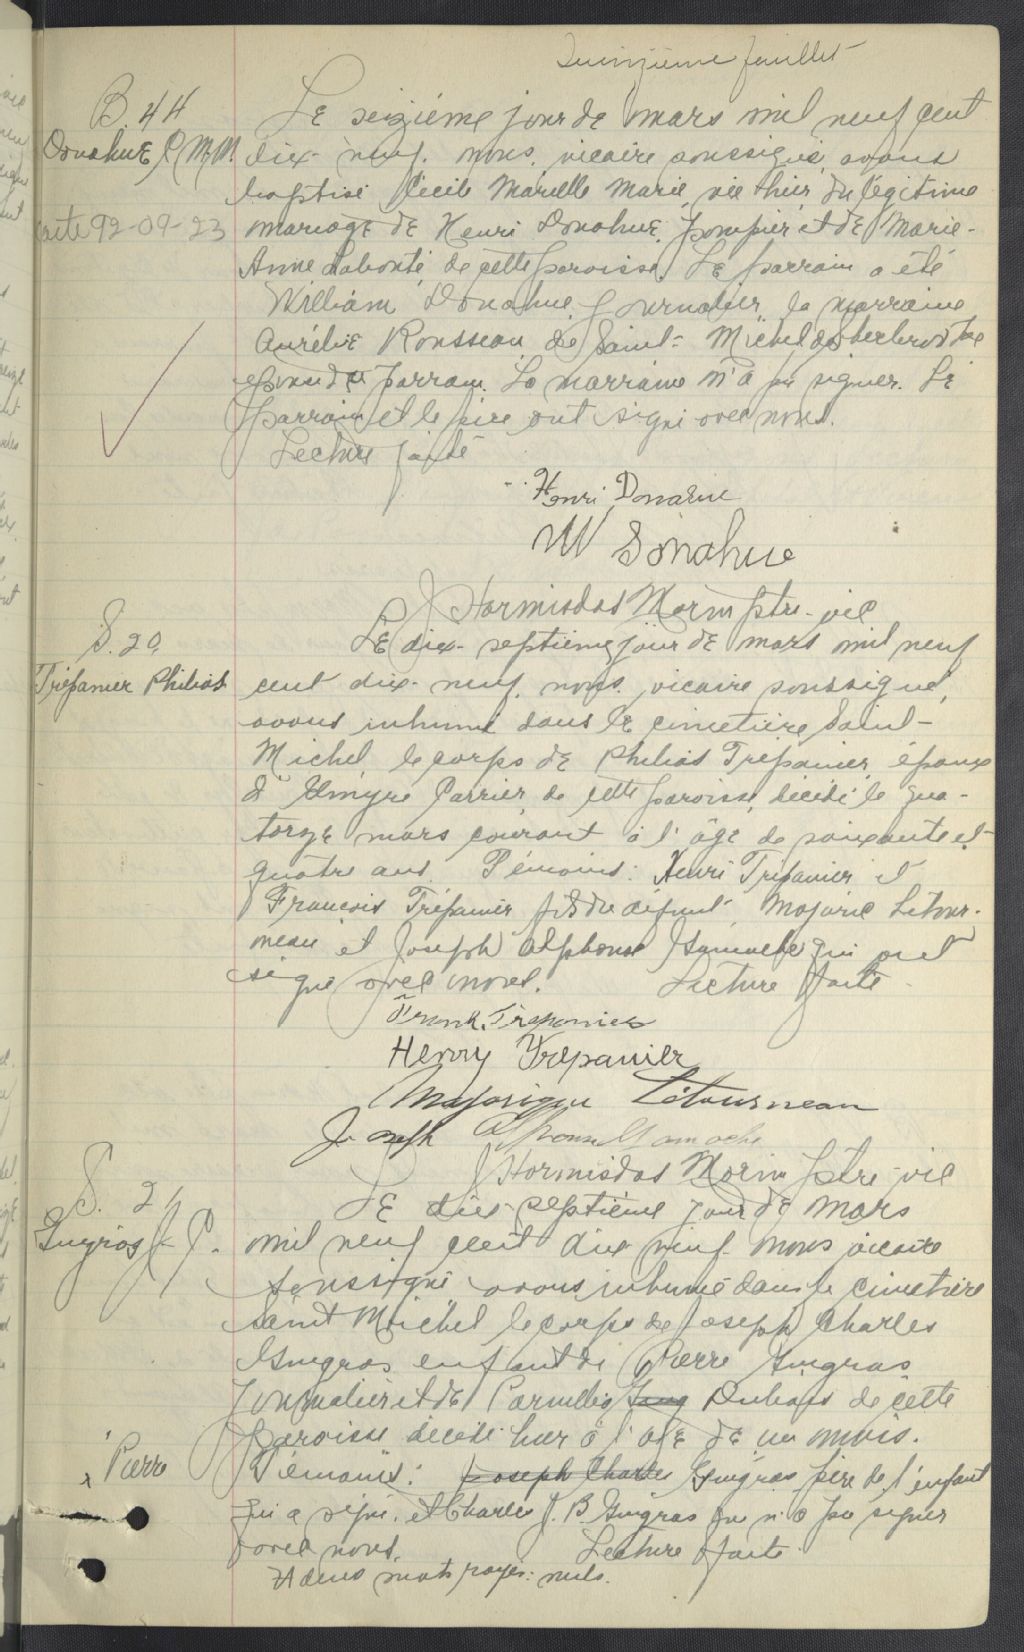 Quinzième feuillet
B. 44
Donahue C. M. M.
acte 92-09-23
Le seizième jour de mars mil neuf cent
dix-neuf, nous, vicaire soussigné, avons
baptisé Cécile Marielle Marie, née hier, du légitime
mariage de Henri Donahue, pompier et de Marie-
Anne Labonté, de cette paroisse. Le parrain a été
William Donahue, journalier, la marraine
Aurélie Rousseau, de Saint-Michel de Sherbrooke
épouse du parrain. La marraine n'a pu signer. Le
parrain et le père ont signé avec nous.
Lecture faite
Henri Donahue
W Donahue
J Hormisdas Morin ptre-vic
S. 20
Trépanier Philias
Le dix-septième jour de mars mil neuf
cent dix-neuf, nous, vicaire soussigné,
avons inhumé dans le cimetière Saint-
Michel, le corps de Philias Trépanier, époux
d' Carrier, de cette paroisse, décédé le qua-
torze mars courant à l'âge de soixante et
quatre ans. Témoins: Henri Trépanier et
François Trépanier, fils du défunt, Majoric Létour-
neau et Joseph Alphonse Gamache qui ont
signé avec nous. Lecture faite
Frank Trépanier
Henry Trepanier
Majorique Létourneau
Joseph Alphonse Gamache
J Hormisdas Morin ptre-vic
S. 21
Gingras J. C.
Le dix-septième jour de mars
mil neuf cent dix neuf nous vicaire
soussigné avons inhumé dans le cimetière
Saint Michel le corps de Joseph Charles
Gingras enfant de Pierre Gingras
journalier et de Dubois de cette
paroisse décédé hier à l'âge de un mois.
x Pierre
Témoins: Joseph Charles Gingras père de l'enfant
qui a signé, et Charles J. B. Gingras qui n'a pu signer
avec nous. Lecture faite
mots rayés: nuls.